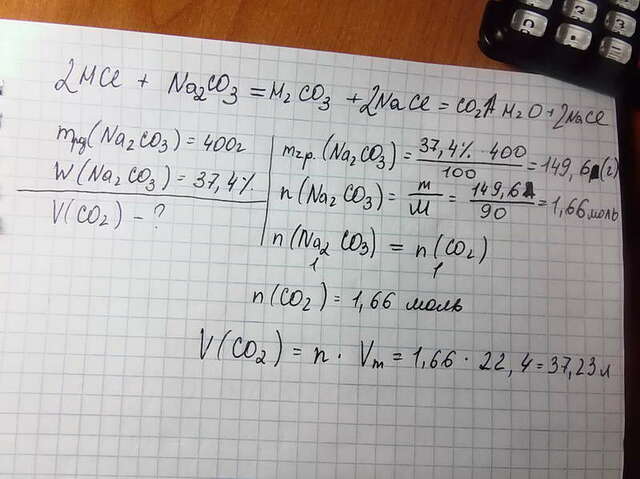 2HCl + Na₂CO₃ = H₂CO₃ + 2NaCl = CO₂↑ H₂O + 2NaCl
mрд(Na₂CO₃) = 400г
W(Na₂CO₃) = 37,4%
V(CO₂) - ?
mчр.(Na₂CO₃) = 37,4% · 400 / 100 = 149,6 (г)
n(Na₂CO₃) = m / M = 149,6 / 90 = 1,66 моль
n(Na₂CO₃) = n(CO₂)
1 1
n(CO₂) = 1,66 моль
V(CO₂) = n · Vm = 1,66 · 22,4 = 37,23 л